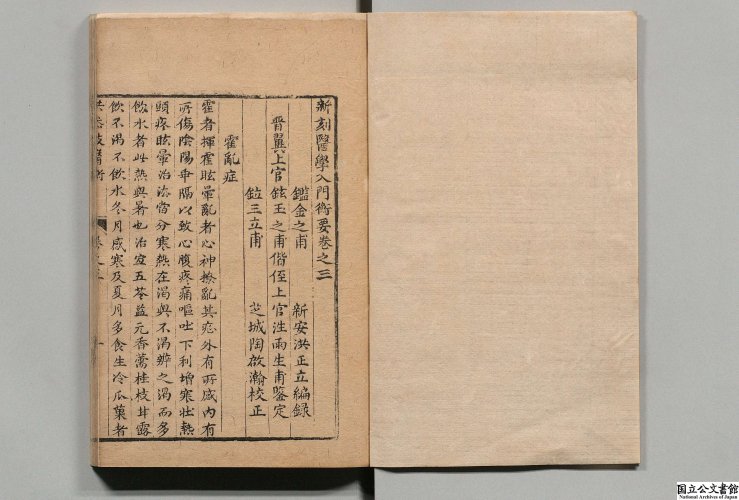 新刻醫學入門術要卷之三
鑑金之甫　新安洪正立編錄
晉翼上官鉉玉之甫偕侄上官洼雨生甫鑒定
鉝三立甫　芝城陶啟瀚校正
霍亂症
霍者揮霍眩暈亂者心神撩亂其症外有所感內有
所傷陰陽乖隔以致心腹疼痛嘔吐下利增寒壯熱
頭疼眩暈治法當分寒熱在渴與不渴辨之渴而多
飲水者此熱與暑也治宜五苓益元香薷桂枝甘露
飲不渴不飲水冬月感寒及夏月多食生冷瓜菓者
卷之三
一
国立公文書館
National Archives of Japan